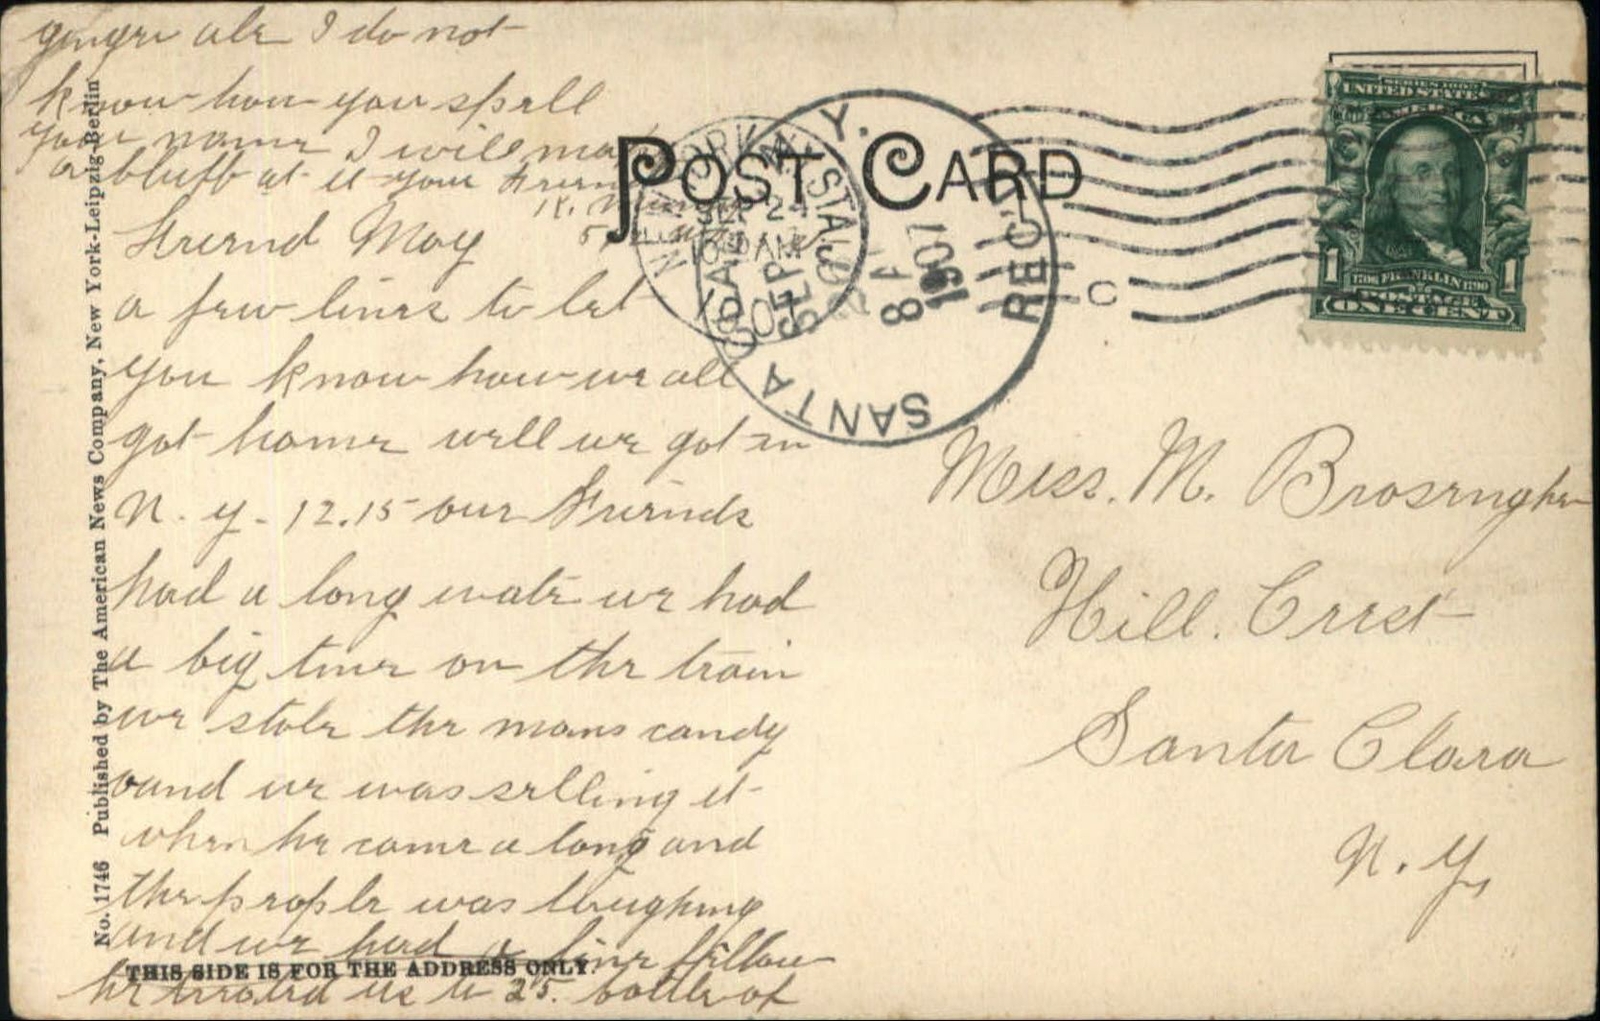 Freind May
a few lines to let
you know how we all
got home well we got in
N. Y. 12.15 our Freinds
had a long wate we had
a big time on the train
we stole the mans candy
and we was selling it
when he came a long and
the people was laughing
and we had a fine fellow
he treated us to 25. bottle of
ginger ale I do not
know how you spell
your name I will make
a bluff at it your
POST CARD
SANTA CLARA N.Y.
SEP
8 A
1907
REC'D
NEW YORK N.Y. STA.
SEP 24
10 AM
C
SERIES 1902
UNITED STATES OF AMERICA
1706 FRANKLIN 1790
1 1
ONE CENT
Miss. M. Brosengher
Hill. Crest
Santa Clara
N. Y,
No. 1746 Published by The American News Company, New York-Leipzig-Berlin
THIS SIDE IS FOR THE ADDRESS ONLY.